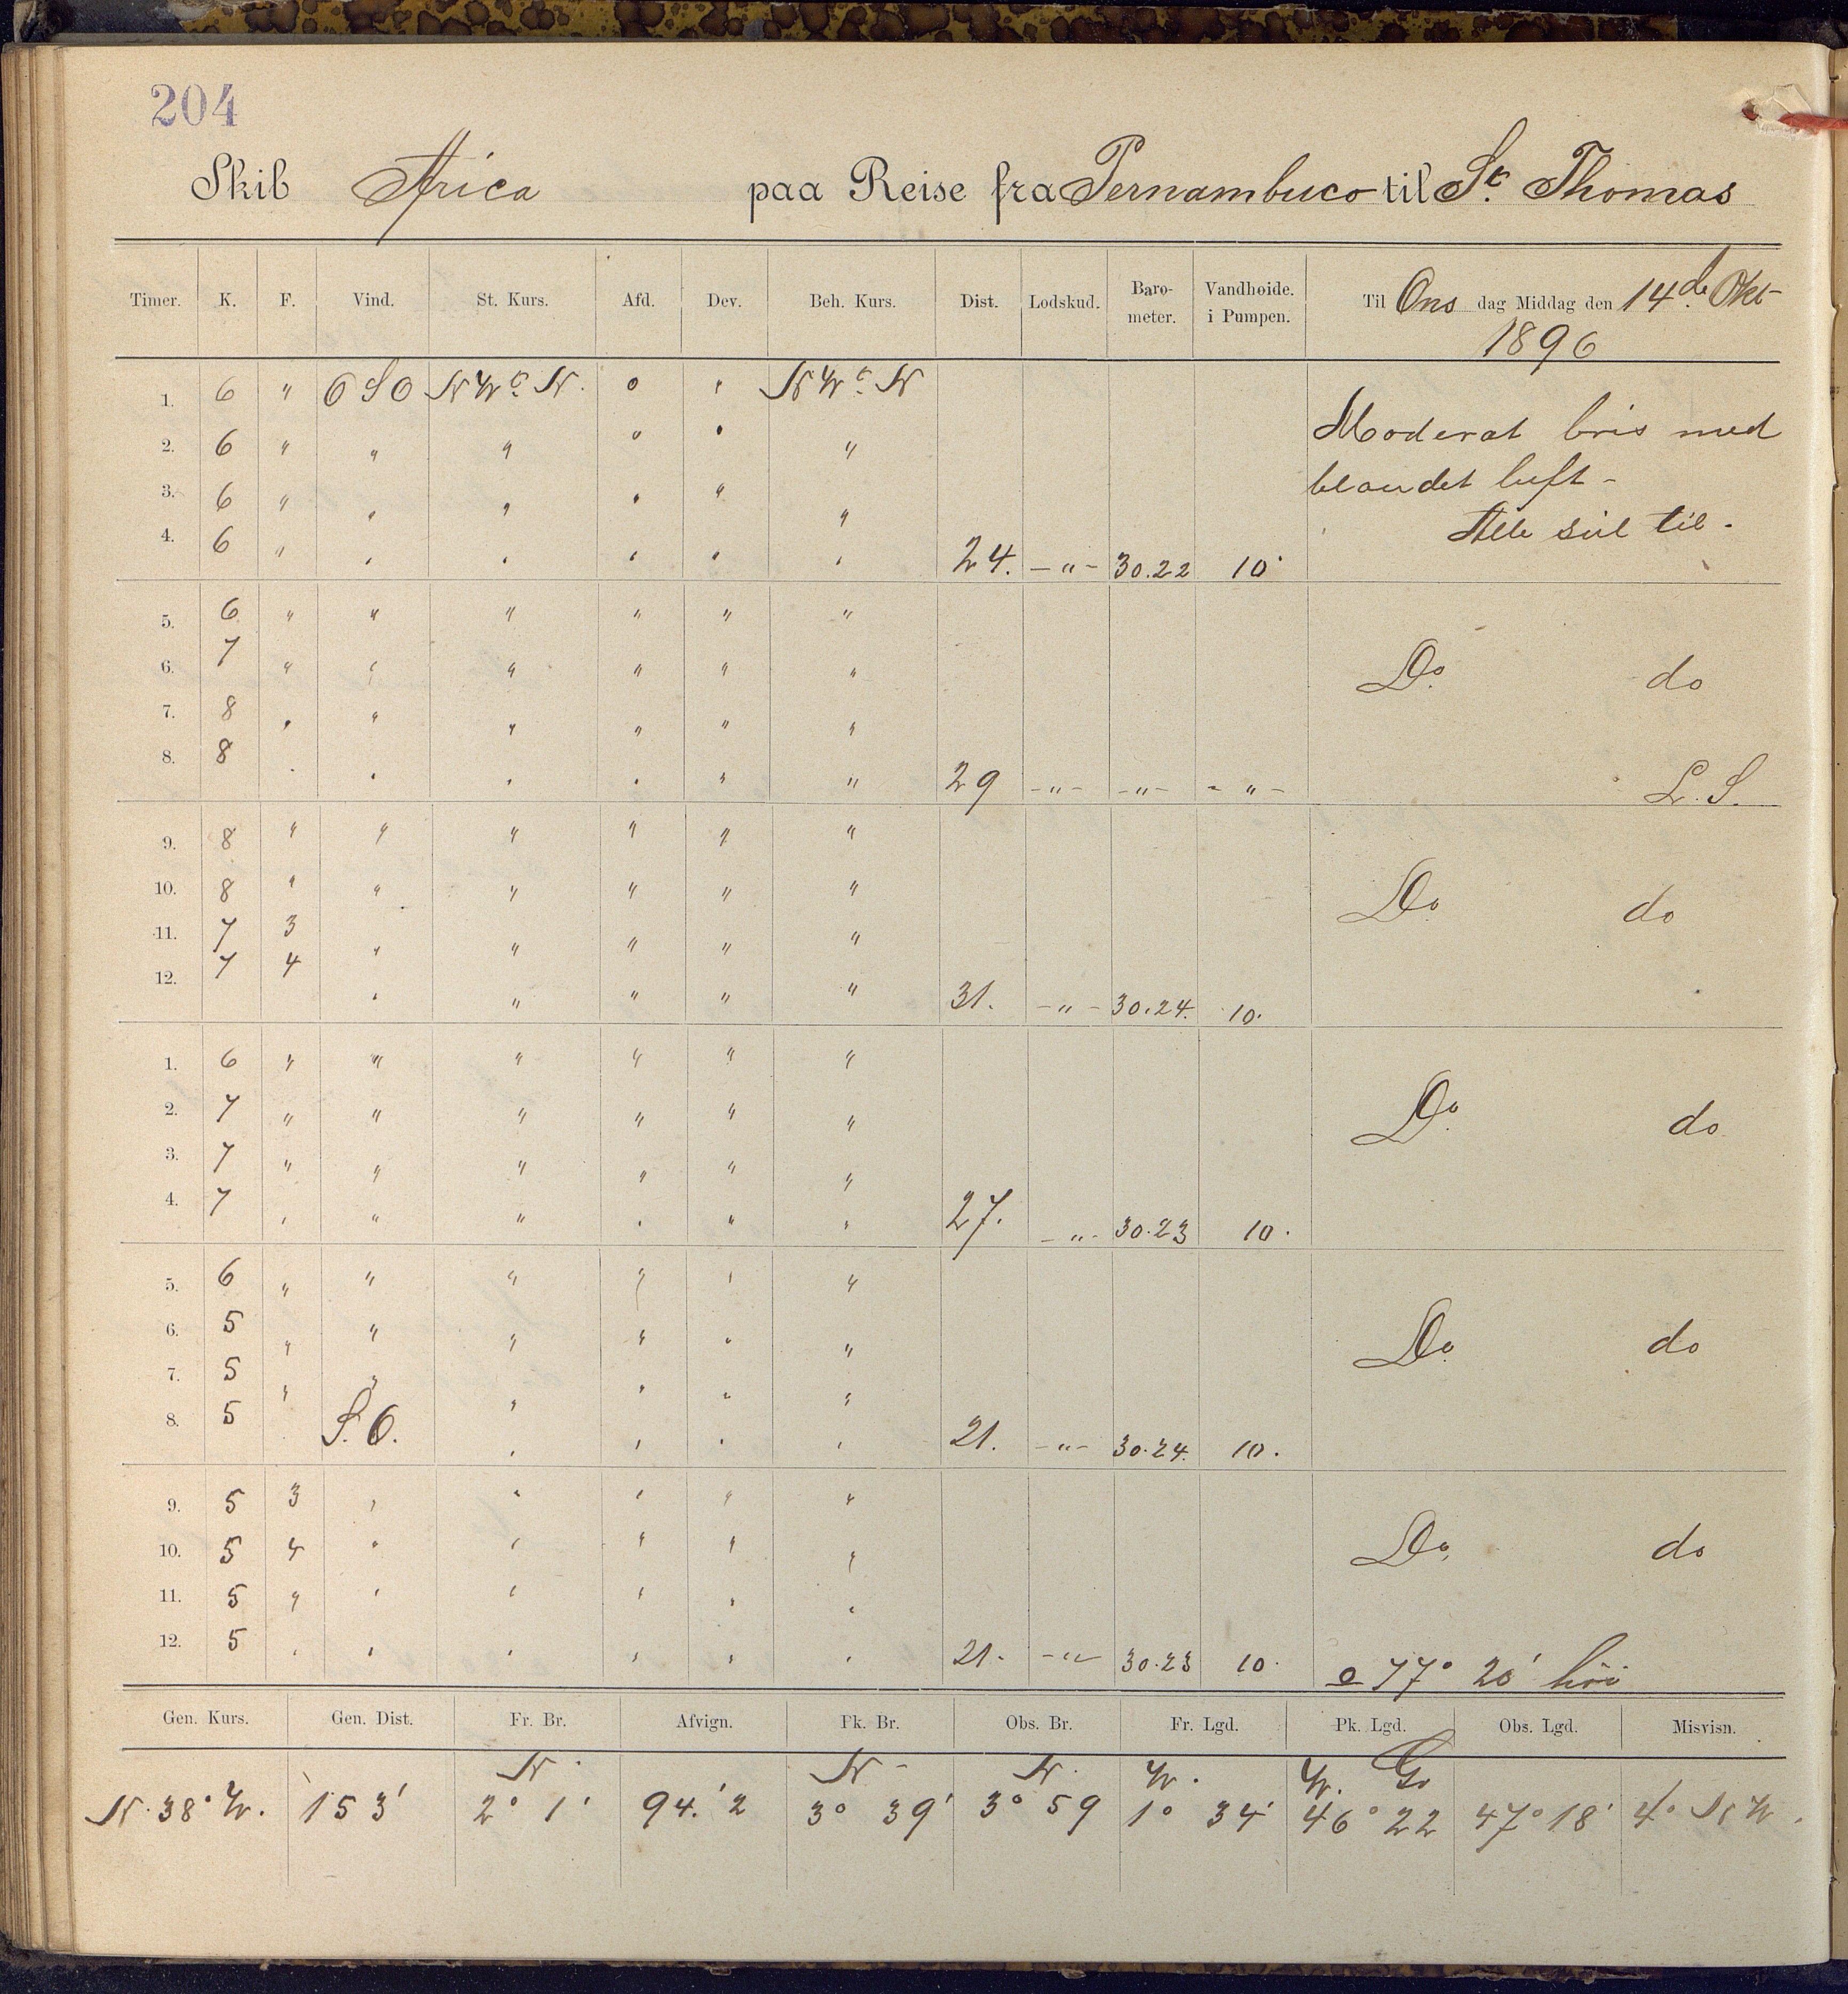 204
Skib Arica paa Reise fra Pernambuco til St. Thomas
Timer. K. F. Vind. St. Kurs. Afd. Dev. Beh. Kurs. Dist. Lodskud. Baro-meter. Vandhøide. i Pumpen. Til Ons dag Middag den 14de Okt 1896
1. 6 " OSO NWtN. 0 " NWtN
2. 6 " " " " " " Moderat bris med
3. 6 " " " " " " blandet luft -
4. 6 " " " " " " 24. -"- 30.22 10 Alle seil til.
5. 6 " " " " " "
6. 7 " " " " " " Do do
7. 8 " " " " " "
8. 8 " " " " " " 29 -"- -"- -"- L. S.
9. 8 " " " " " "
10. 8 " " " " " " Do do
11. 7 3 " " " " "
12. 7 4 " " " " " 31. -"- 30.24. 10.
1. 6 " " " " " "
2. 7 " " " " " " Do do
3. 7 " " " " " "
4. 7 " " " " " " 27. -"- 30.23 10.
5. 6 " " " " " "
6. 5 " " " " " " Do do
7. 5 " " " " " "
8. 5 " S.O. " " " " 21. -"- 30.24. 10.
9. 5 3 " " " " "
10. 5 4 " " " " " Do do
11. 5 " " " " " "
12. 5 " " " " " " 21. -"- 30.23 10. 77° 20'
Gen. Kurs. Gen. Dist. Fr. Br. Afvign. Pk. Br. Obs. Br. Fr. Lgd. Pk. Lgd. Obs. Lgd. Misvisn.
N. N- N. W. W. Gr
N. 38° W. 153' 2° 1' 94.'2 3° 39' 3° 59 1° 34' 46° 22 47° 18' 4° NW.